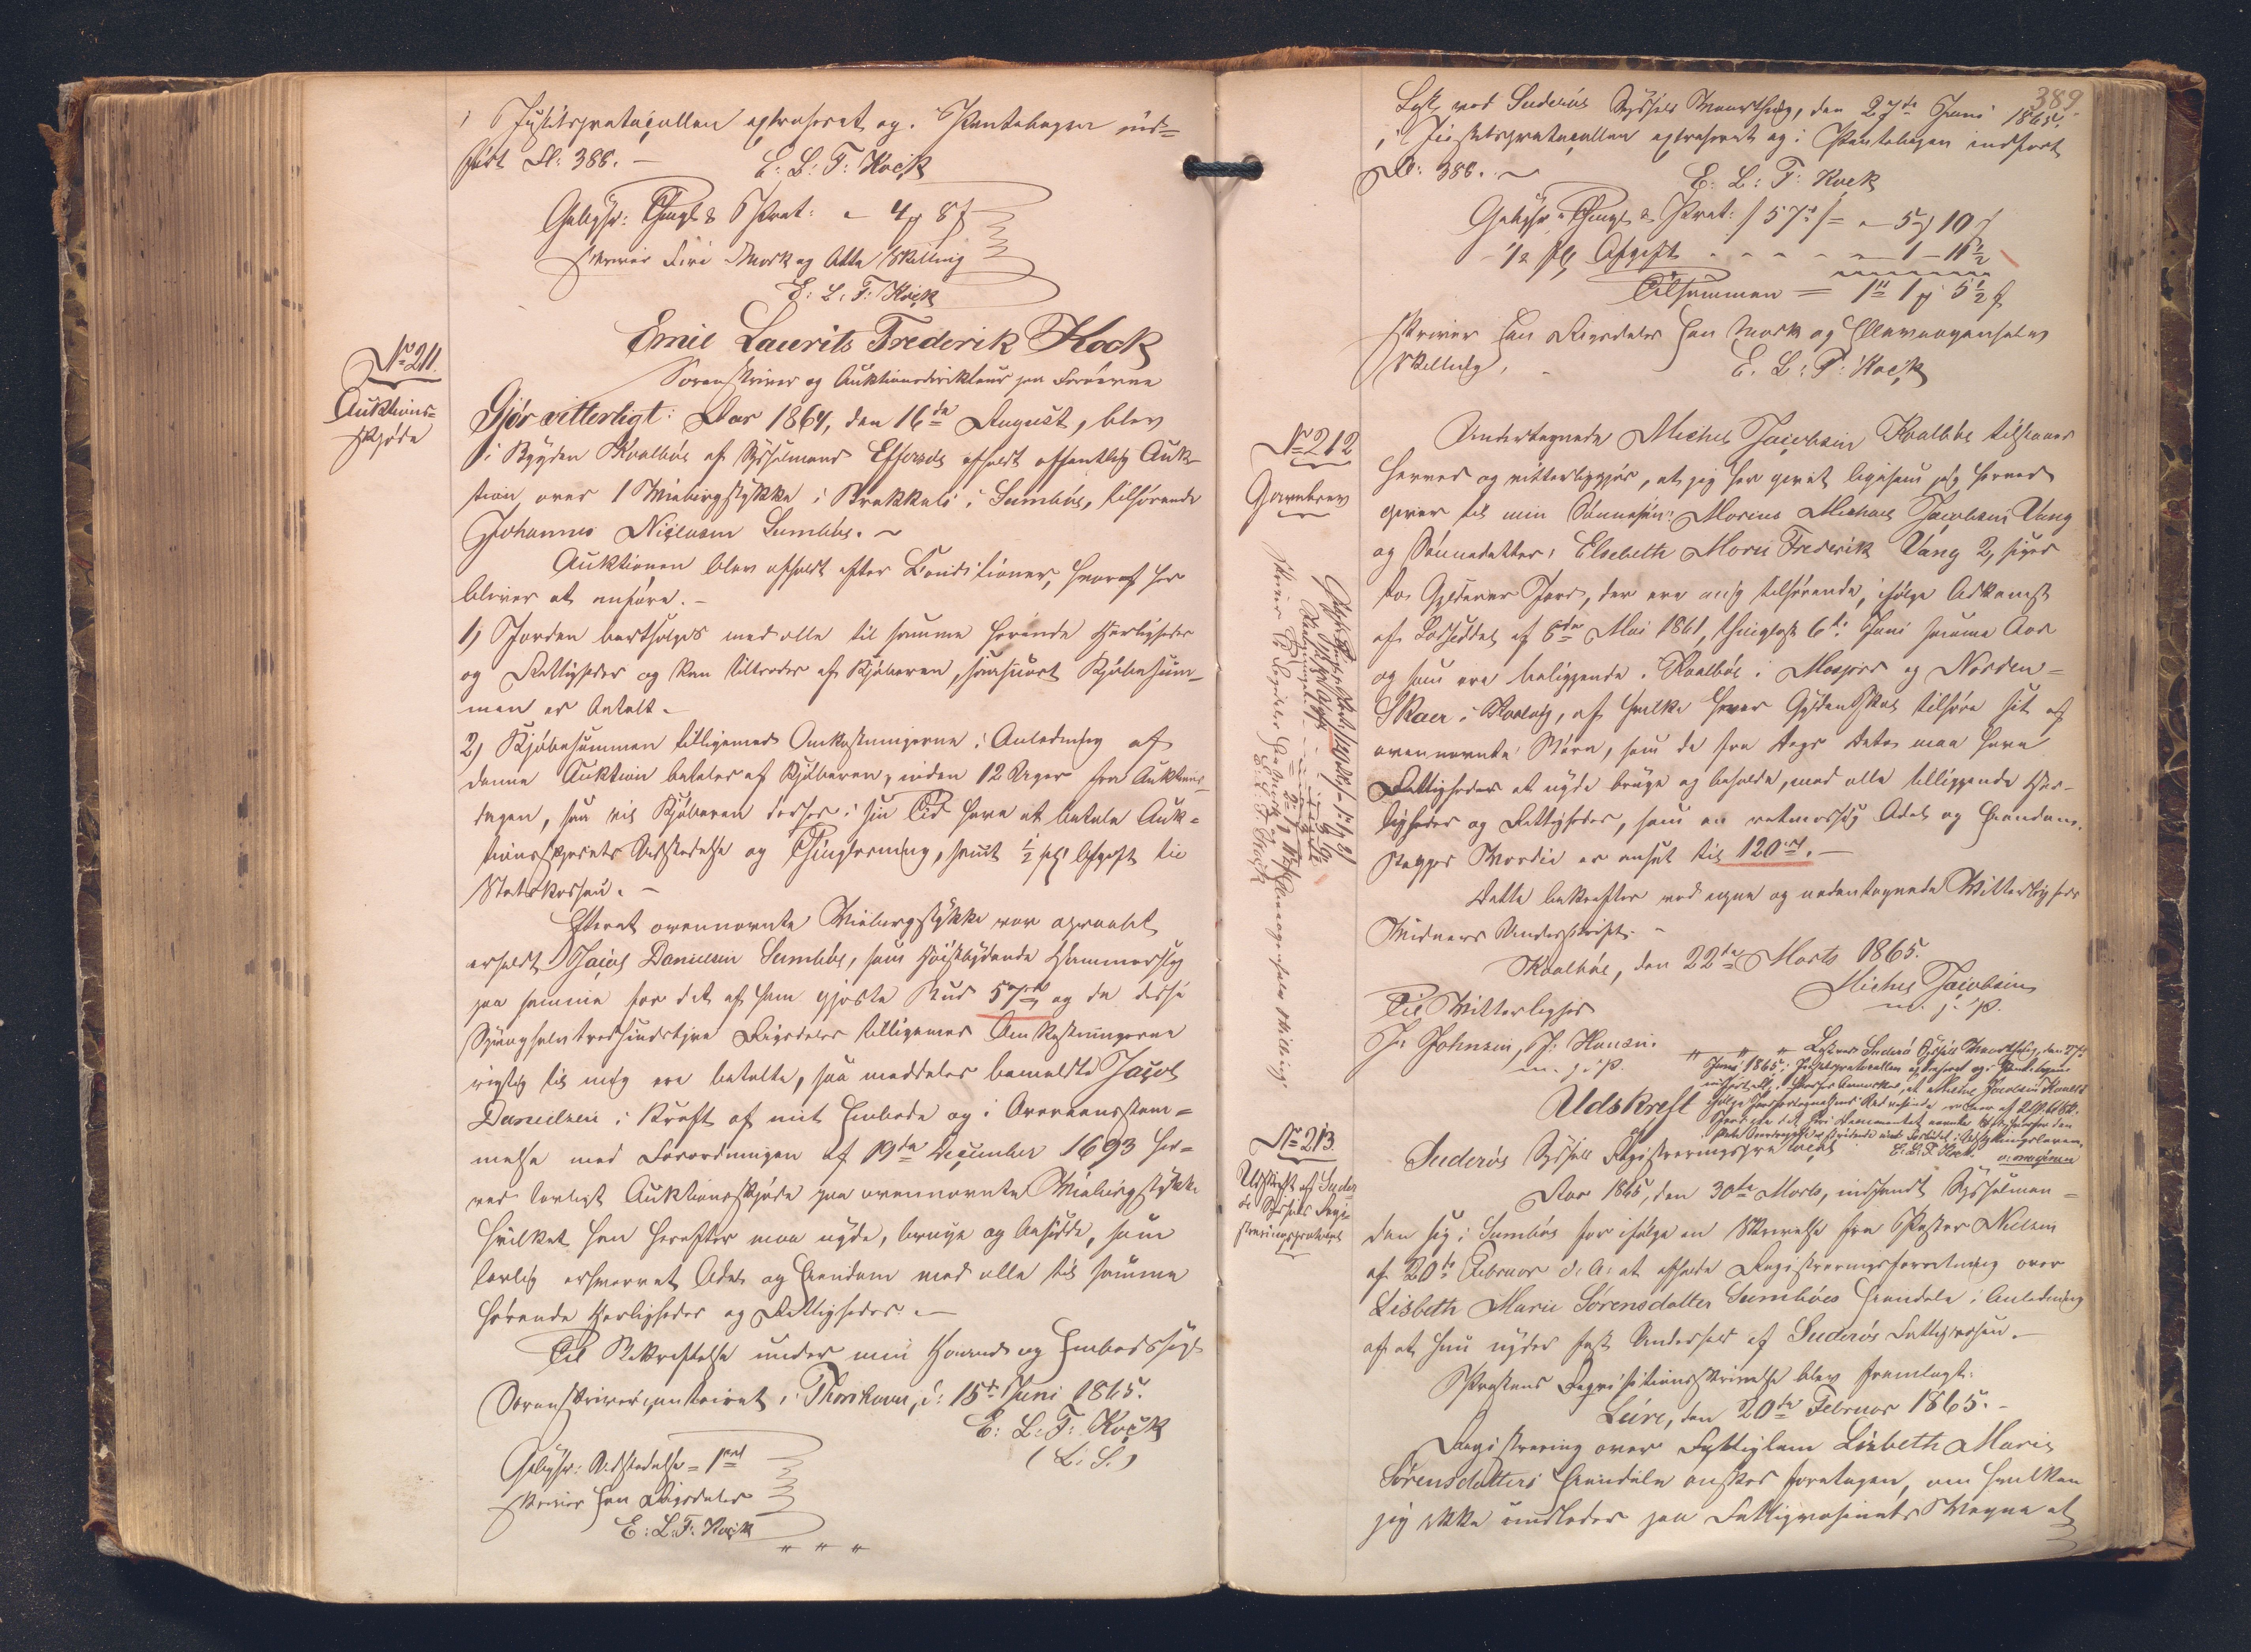 i Justitsprotocollen extraheret og i Pantebogen ind=
ført Fl: 388. —
E: L: F: Kock
Gebyhr: Thingl: & Prot: = 4 ₥ 8 ß
skriver Fire Mark og Otte Skilling
E: L: F: Kock
No 211.
Auktions=
skjøde
Emil Laurits Frederik Kock
Sorenskriver og Auktionsdirekteur paa Færøerne
Gjør vitterligt: Aar 1864, den 16de August, blev
i Bygden Kvalbøe af Sysselmand Effersøe afholdt offentlig Auk-
tion over 1 Miebirgstykke i Brekkuli i Sumbøe, tilhørende
Johannes Niclasen Sumbøe. —
Auktionen blev afholdt efter Conditioner, hvoraf her
bliver at anføre. —
1) Jorden bortsælges med alle til samme hørende Herligheder
og Rettigheder og kan tiltrædes af Kjøberen, saasnart Kjøbesum-
men er betalt. —
2) Kjøbesummen tilligemed Omkostningerne i Anledning af
denne Auktion betales af Kjøberen, inden 12 Uger fra Auktions-
dagen, saa vil Kjøberen derhos i sin Tid have at betale Auk=
tionsskjødets Udstedelse og Thinglæsning, samt ½ pCt Afgift til
Statskassen. —
Efterat ovennævnte Miebirgstykke var opraabt
erholdt Jacob Danielsen Sumbøe, som Høistbydende Hammerslag
paa samme for det af ham gjorte Bud 57 rd og da disse
Syvoghalvtredsindstyve Rigsdaler tilligemed Omkostningerne
rigtig til mig ere betalte, saa meddeles bemeldte Jacob
Danielsen i Kraft af mit Embede og i Overeensstem=
melse med Forordningen af 19de December 1693 her=
ved lovligt Auktionsskjøde paa ovennævnte Miebirgstykke
hvilket han herefter maa nyde, bruge og besidde, som
lovlig erhvervet Odel og Eiendom med alle til samme
hørende Herligheder og Rettigheder. —
Til Bekræftelse under min Haand og Embedssegl
Sorenskrivercontoiret i Thorshavn, d: 15de Juni 1865.
E: L: F: Kock
(L. S.)
Gebyhr: Udstedelse = 1 rd
skriver Een Rigsdaler
E: L: F: Kock
" " "
389
Læst ved Suderøe Syssels Vaarthing, den 27de Juni 1865.
i Justitsprotocollen extraheret og i Pantebogen indført
Fl: 388. —
E: L: F: Kock
Gebyhr: Thingl & Prot: / 57 rd / = — 5 ₥ 10 ß
½ pCt Afgift - - - - - 1 — 11½
Tilsammen = 1 rd 1 ₥ 5½ ß
skriver Een Rigsdaler Een Mark og
Skilling.
E. L: F: Kock
No 212
Gavebrev
Undertegnede Michel Jacobsen Kvalbøe tilstaaer
herved og vitterliggjør, at jeg har givet ligesom jeg herved
giver til min Sønnesøn: Morius Michael Jacobsen Vang
og Sønnedatter: Elsebeth Marie Frederik Vang 2, siger
to Gyldener Jord, der ere mig tilhørende, ifølge Adkomst
af Lodseddel af 6de Mai 1861, thinglæst 6te Juni samme Aar
og som ere beliggende i Kvalbøe i og Norden=
Skaer i, af hvilke hver Gyldenskal tilhøre sit af
ovennævnte Børn, som de fra Dags Dato maa have
Rettigheder at nyde bruge og beholde, med alle tilliggende Her-
ligheder og Rettigheder, som en retmæssig Odel og Eiendom.
Stykkets Værdie er ansat til 120 rd. —
Dette bekræftes ved egne og nedentegnede Vitterligheds
Vidners Underskrift. —
Kvalbøe, den 22de Marts 1865.
Michel Jacobsen
m. f. P.
Til Vitterlighed
J: Johnsen, P: Hansen.
m. f. P.
" " " Læst ved Suderø Syssels Vaarthing, den 27de
Juni 1865, i Justitsprotocollen extraheret og i Pantebogen
E: L: F: Kock
No 213
Udskrift af Suder-
øe Syssels Regi-
streringsprotokol
Udskrift
af
Suderøe Syssels Registreringsprotokol
Aar 1865, den 30te Marts, indfandt Sysselman=
den sig i Sumbøe for ifølge en Skrivelse fra Pastor Nielsen
af 20de Februar d: A: at afholde Registreringsforretning over
Lisbeth Marie Sørensdatter Sumbøes Eiendele i Anledning
af at hun nyder fast Underhold af Suderøe Fattigvæsen. —
Præstens Reqvisitionsskrivelse blev fremlagt.
den 20de Februar 1865. —
Registrering over Fattiglem Lisbeth Marie
Sørensdatters Eiendele ønskes foretagen, om hvilken
jeg ikke undlader paa Fattigvæsenets Vegne at